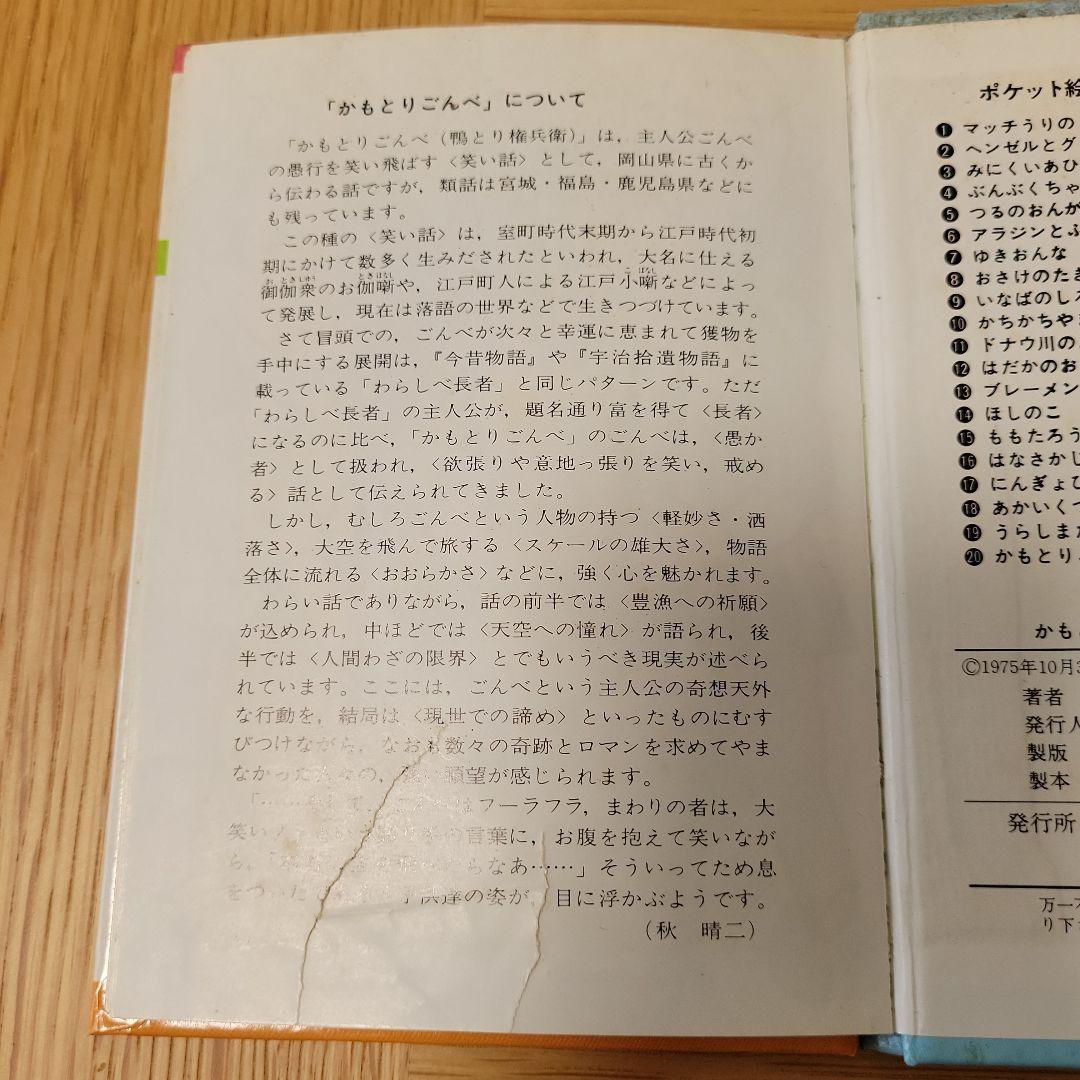 「かもとりごんべ」について
「かもとりごんべ（鴨とり権兵衛）」は，主人公ごんべ
の愚行を笑い飛ばす〈笑い話〉として，岡山県に古くか
ら伝わる話ですが，類話は宮城・福島・鹿児島県などに
も残っています。
この種の〈笑い話〉は，室町時代末期から江戸時代初
期にかけて数多く生みだされたといわれ，大名に仕える
御伽衆のお伽噺や，江戸町人による江戸小噺などによっ
て発展し，現在は落語の世界などで生きつづけています。
さて冒頭での，ごんべが次々と幸運に恵まれて獲物を
手中にする展開は，『今昔物語』や『宇治拾遺物語』に
載っている「わらしべ長者」と同じパターンです。ただ
「わらしべ長者」の主人公が，題名通り富を得て〈長者〉
になるのに比べ，「かもとりごんべ」のごんべは，〈愚か
者〉として扱われ，〈欲張りや意地っ張りを笑い，戒め
る〉話として伝えられてきました。
しかし，むしろごんべという人物の持つ〈軽妙さ・洒
落さ〉，大空を飛んで旅する〈スケールの雄大さ〉，物語
全体に流れる〈おおらかさ〉などに，強く心を魅かれます。
わらい話でありながら，話の前半では〈豊漁への祈願〉
が込められ，中ほどでは〈天空への憧れ〉が語られ，後
半では〈人間わざの限界〉とでもいうべき現実が述べら
れています。ここには，ごんべという主人公の奇想天外
な行動を，結局は〈現世での諦め〉といったものにむす
びつけながら，なおも数々の奇跡とロマンを求めてやま
なかった の， 願望が感じられます。
「…… はフーラフラ，まわりの者は，大
笑い の言葉に，お腹を抱えて笑いなが
ら，「 らなあ……」そういってため息
をついた 子供達の姿が，目に浮かぶようです。
（秋　晴二）
ポケット絵
❶ マッチうりの
❷ ヘンゼルとグ
❸ みにくいあひ
❹ ぶんぶくちゃ
❺ つるのおんが
❻ アラジンとふ
❼ ゆきおんな
❽ おさけのたき
❾ いなばのしろ
❿ かちかちやま
⓫ ドナウ川の
⓬ はだかのお
⓭ ブレーメン
⓮ ほしのこ
⓯ ももたろう
⓰ はなさかじ
⓱ にんぎょひ
⓲ あかいくつ
⓳ うらしまた
⓴ かもとり
かも
©1975年10月3
著者
発行人
製版
製本
発行所
万一
り下